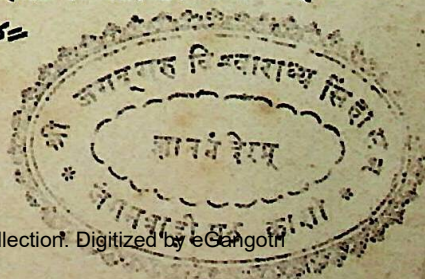 श्री जगद्गुरु विश्वाराध्य सिंहासन
ज्ञानमंदिरम्
जंगमवाडी मठ
llection. Digitized by eGangotri